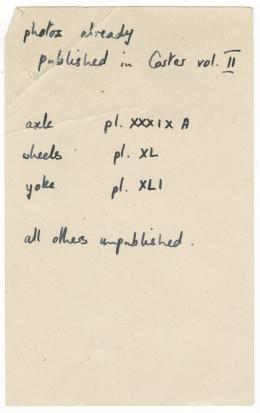 photos already
published in Carter vol. II
axle pl. XXXIX A
wheels pl. XL
yoke pl. XLI
all others unpublished.